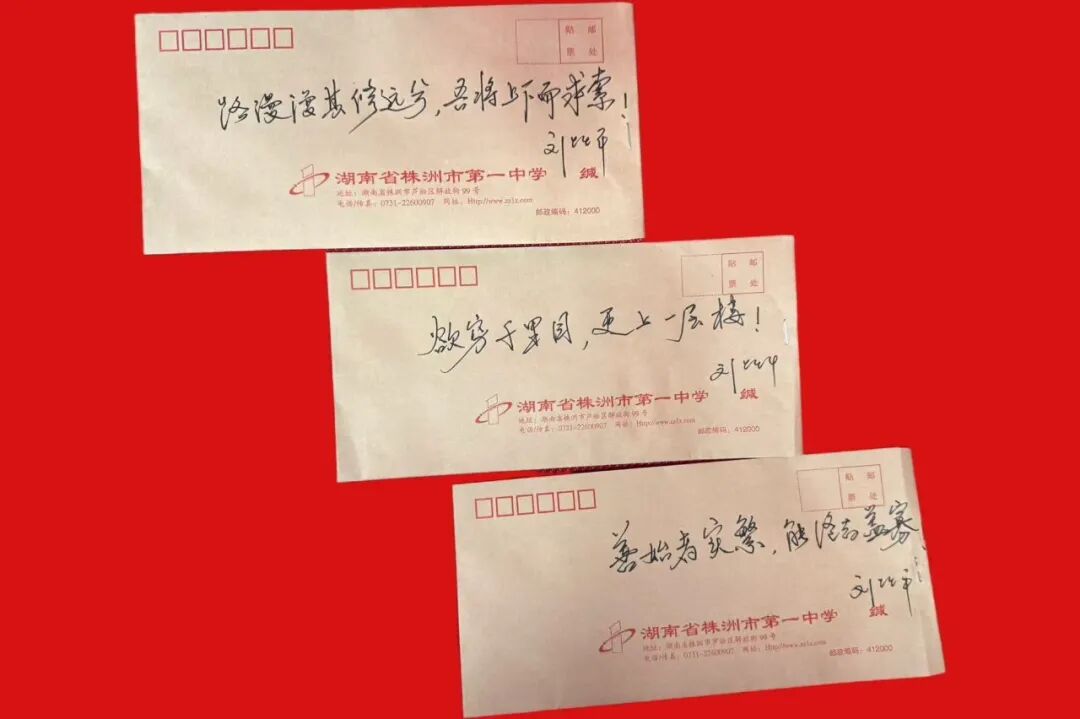 贴 邮
票 处
路漫漫其修远兮，吾将上下而求索！
刘
湖南省株洲市第一中学 缄
地址：湖南省株洲市芦淞区解放街99号
电话/传真：0731-22600907 网址：Http://www.zzlz.com
邮政编码：412000
贴 邮
票 处
欲穷千里目，更上一层楼！
刘
湖南省株洲市第一中学 缄
地址：湖南省株洲市芦淞区解放街99号
电话/传真：0731-22600907 网址：Http://www.zzlz.com
邮政编码：412000
贴 邮
票 处
善始者实繁，能终者盖寡！
刘
湖南省株洲市第一中学 缄
地址：湖南省株洲市芦淞区解放街99号
电话/传真：0731-22600907 网址：Http://www.zzlz.com
邮政编码：412000